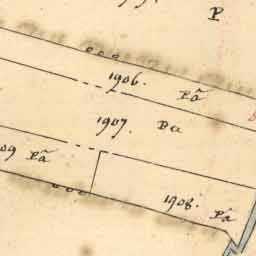 P
1906. Pâ
1907. Da
09 Pâ
1908. Pâ